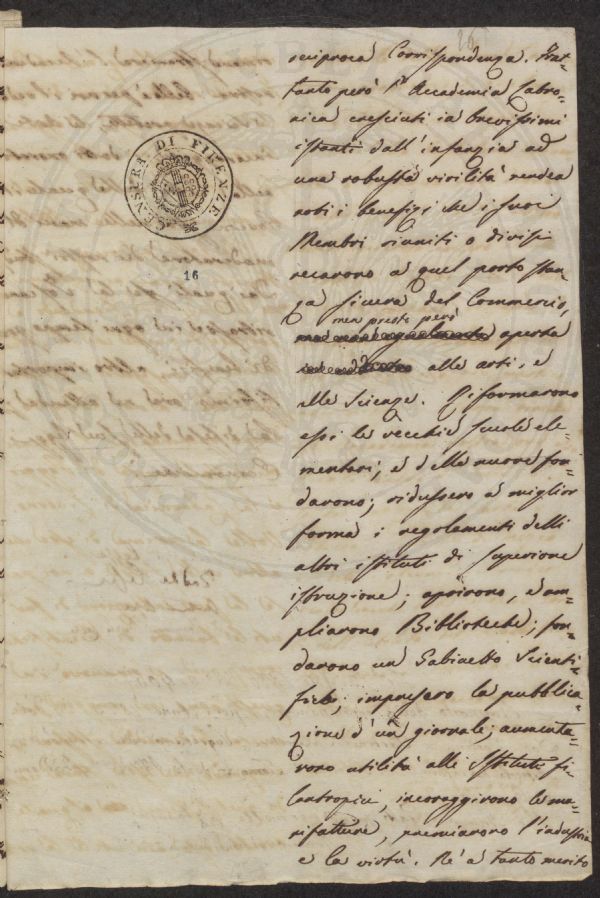 reciproca Corrispondenza. Frat-
tanto però l'Accademia Labro-
nica cresciuta in brevissimi
istanti dall'infanzia ad
una robusta virilità rendea
noti i benefizi che i suoi
Membri riuniti o divisi
recarono a quel porto stan-
za sicura del Commercio,
men presto però
aperta
alle arti, e
alle Scienze. Riformarono
essi le vecchie scuole ele-
mentari, e delle nuove fon-
darono; ridussero a miglior
forma i regolamenti delli
altri istituti di superiore
istruzione; aprirono, e am-
pliarono Biblioteche; fon-
darono un Gabinetto Scienti-
fico; impresero la pubblica-
zione d'un giornale; aumenta-
rono utilità alle Istituti fi-
lantropici, incoraggirono le ma-
nifatture, premiarono l'industria
e la virtù. Nè a tanto merito
CENSURA DI FIRENZE
16